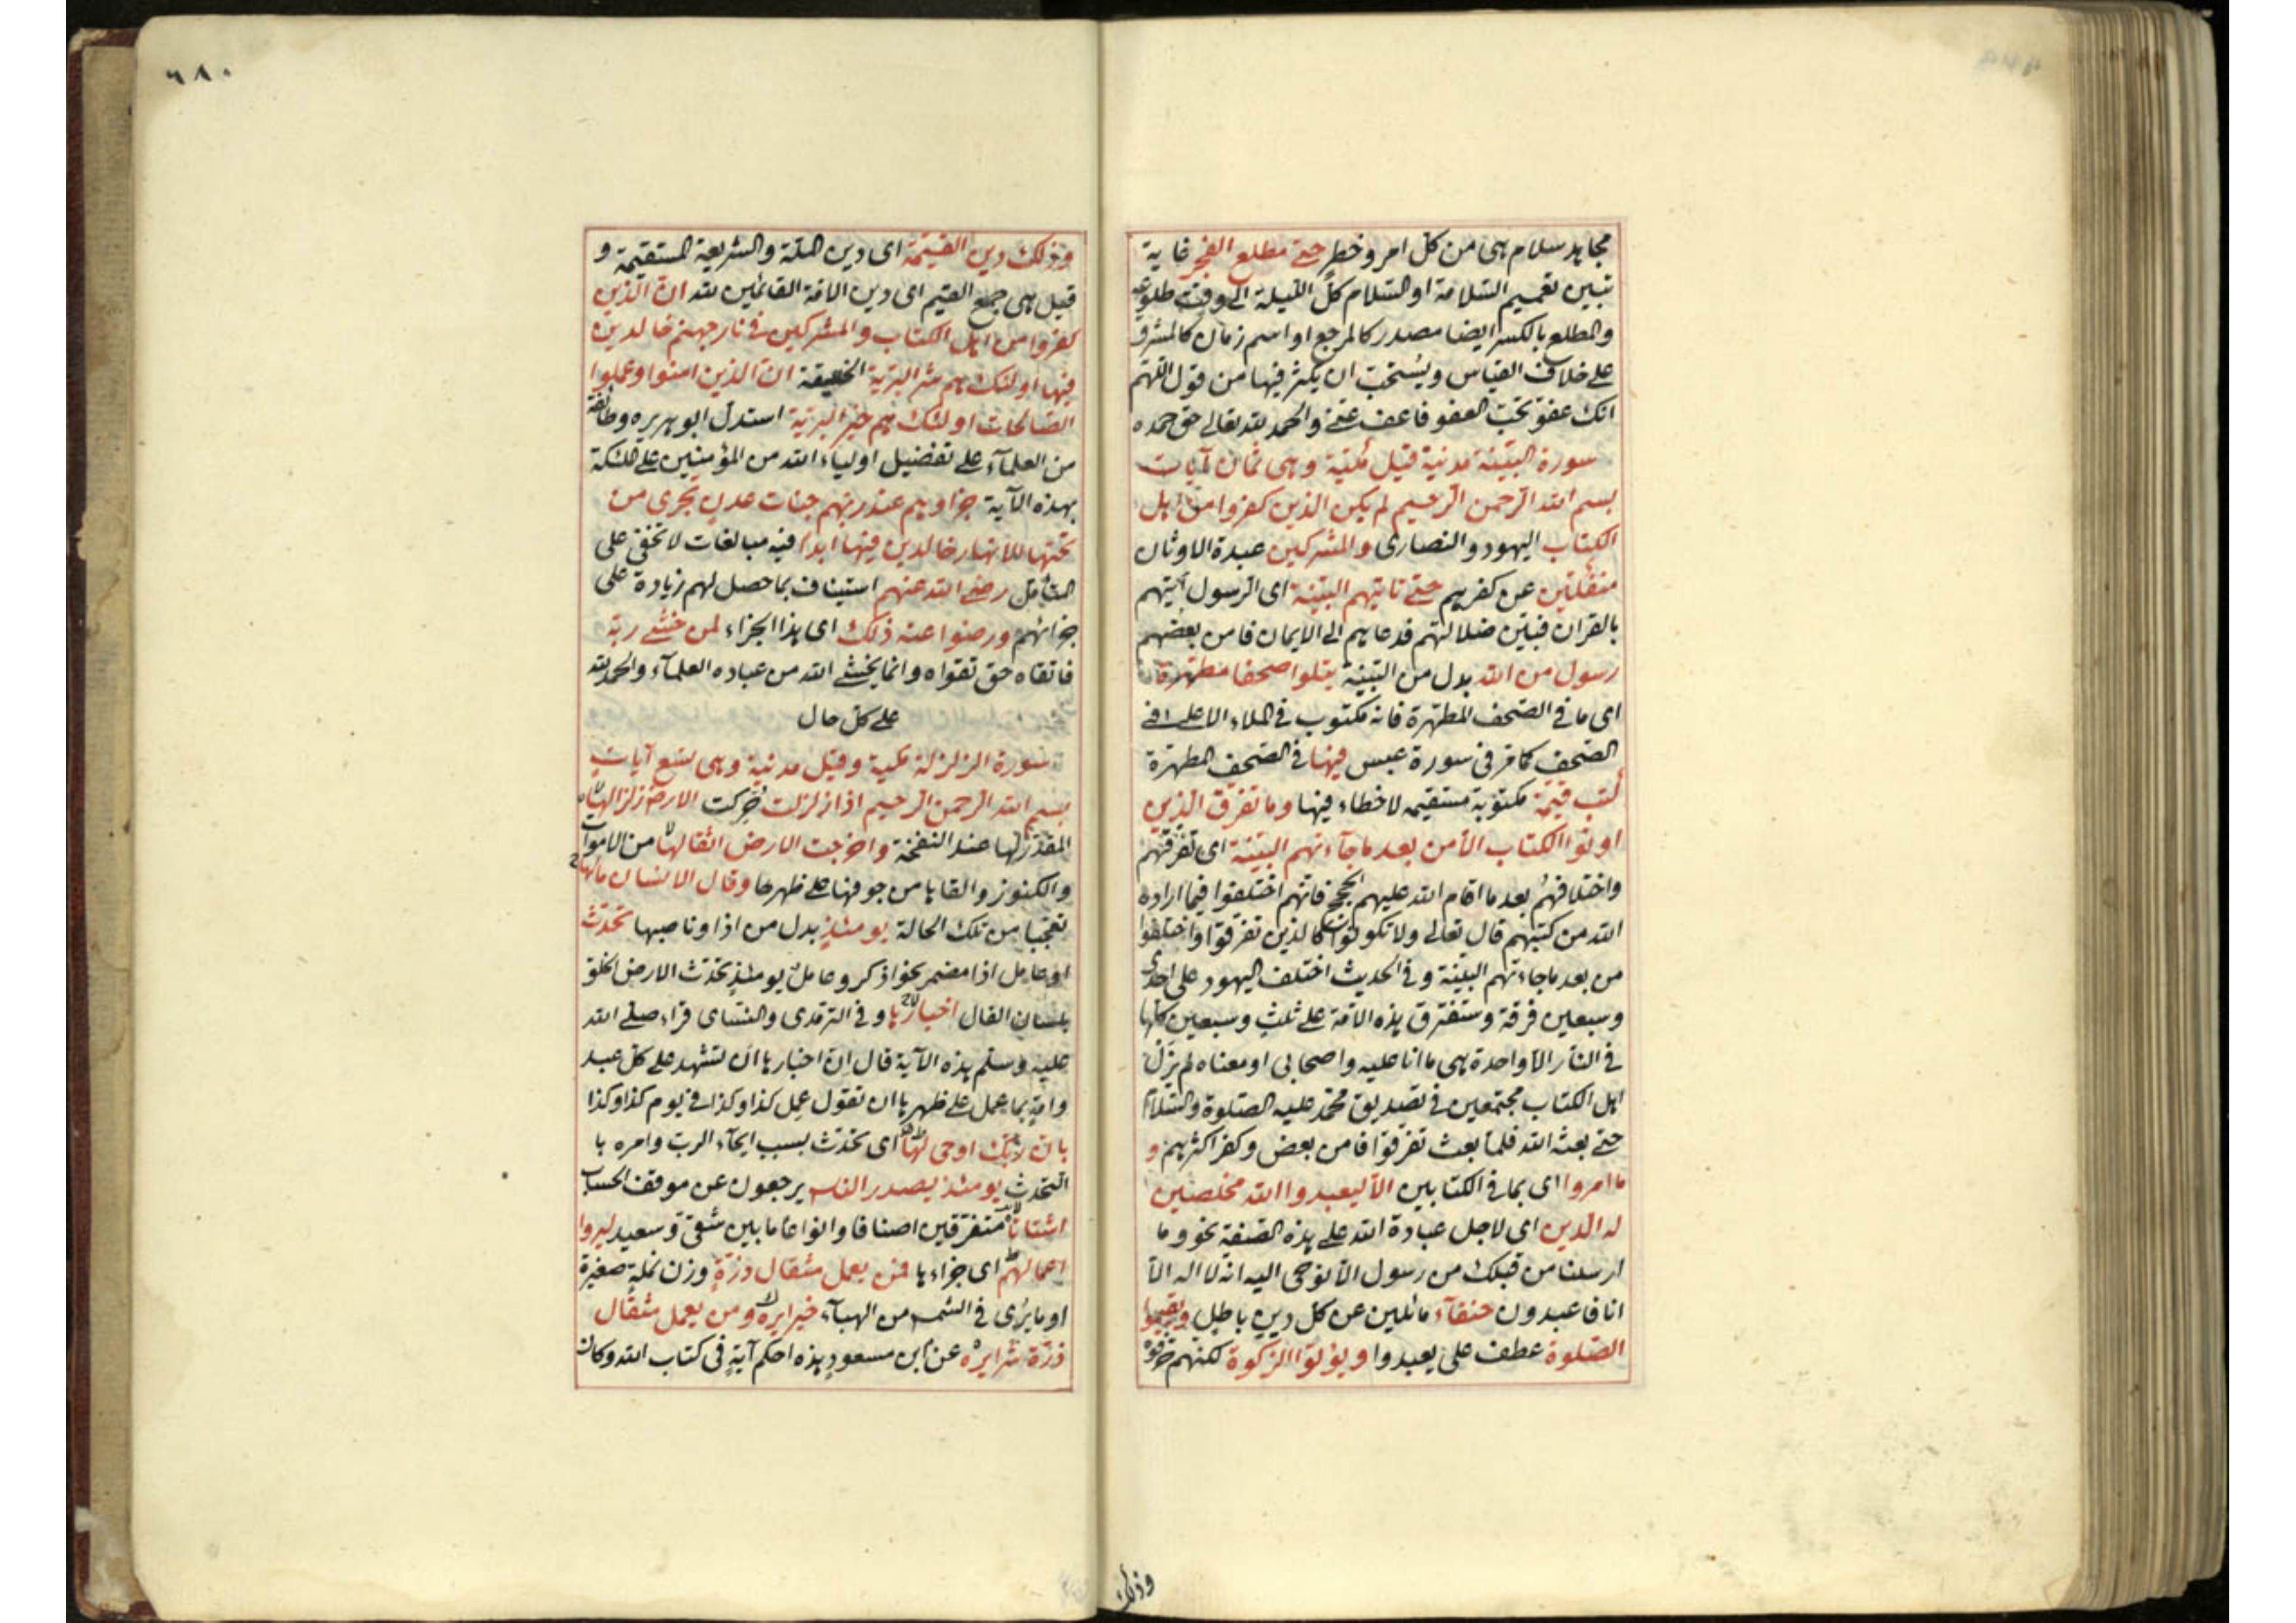 مجاهد سلام هى من كل امر وخطر حتى مطلع الفجر غاية
تبين تعميم السلامة او السلام كل الليلة الى وقت طلوعه
والمطلع بالكسر ايضا مصدر كالمرجع او اسم زمان كالمشرق
على خلاف القياس ويستحب ان يكثر فيها من قول اللهم
انك عفو تحب العفو فاعف عنى والحمد لله تعالى حق حمده
سورة البينة مدنية قيل مكية وهى ثمان آيات
بسم الله الرحمن الرحيم لم يكن الذين كفروا من اهل
الكتاب اليهود والنصارى والمشركين عبدة الاوثان
منفكين عن كفرهم حتى تاتيهم البينة اى الرسول اتيهم
بالقران فبين ضلالتهم فدعاهم الى الايمان فامن بعضهم
رسول من الله بدل من البينة يتلوا صحفا مطهرة
اى ما فى الصحف المطهرة فانه مكتوب فى الملاء الاعلى فى
الصحف كما مر فى سورة عبس فيها فى الصحف المطهرة
كتب قيمة مكتوبة مستقيمه لا خطاء فيها وما تفرق الذين
اوتوا الكتاب الا من بعد ما جآءتهم البينة اى تفرقهم
واختلافهم بعد ما اقام الله عليهم الحجج فانهم اختلفوا فيما اراده
الله من كتبهم قال تعالى ولا تكونوا كالذين تفرقوا واختلفوا
من بعد ما جاءتهم البينة وفى الحديث اختلف اليهود على احدى
وسبعين فرقة وستفترق هذه الامة على ثلث وسبعين كلها
فى النار الا واحدة هى ما انا عليه واصحابى او معناه لم يزل
اهل الكتاب مجتمعين فى تصديق محمد عليه الصلوة والسلام
حتى بعثه الله فلما بعث تفرقوا فامن بعض وكفر اكثرهم و
ما امروا اى بما فى الكتابين الا ليعبدوا الله مخلصين
له الدين اى لاجل عبادة الله على هذه الصفة نحو وما
ارسلنا من قبلك من رسول الا نوحى اليه انه لا اله الا
انا فاعبدون حنفآء مائلين عن كل دين باطل ويقيموا
الصلوة عطف على يعبدوا ويؤتوا الزكوة لكنهم حرفوه
وذلك
٦٨٠
وذلك دين القيمة اى دين الملة والشريعة المستقيمة و
قيل هى جمع القيم اى دين الامة القائمين لله ان الذين
كفروا من اهل الكتاب والمشركين فى نار جهنم خالدين
فيها اولئك هم شر البرية الخليقة ان الذين امنوا وعملوا
الصالحات اولئك هم خير البرية استدل ابو هريره وطائفة
من العلمآء على تفضيل اولياء الله من المؤمنين على الملئكة
بهذه الآية جزاوهم عند ربهم جنات عدن تجرى من
تحتها الانهار خالدين فيها ابدا فيه مبالغات لا تخفى على
المتأمل رضى الله عنهم استيناف بما حصل لهم زيادة على
جزائهم ورضوا عنه ذلك اى هذا الجزاء لمن خشى ربه
فاتقاه حق تقواه وانما يخشى الله من عباده العلمآء والحمد لله
على كل حال
سورة الزلزلة مكية وقيل مدنية وهى تسع آيات
بسم الله الرحمن الرحيم اذا زلزلت حركت الارض زلزالها
المقدر لها عند النفخة واخرجت الارض اثقالها من الاموات
والكنوز والقايا من جوفها على ظهرها وقال الانسان مالها
تعجبا من تلك الحالة يومئذ بدل من اذا وناصبها تحدث
او عامل اذا مضمر نحو اذكر وعامل يومئذ تحدث الارض الخلق
بلسان القال اخبارها وفى الترمذى والنسائى قراء صلى الله
عليه وسلم هذه الآية قال ان اخبارها ان تشهد على كل عبد
وامة بما عمل على ظهرها ان تقول عمل كذا وكذا فى يوم كذا وكذا
بان ربك اوحى لها اى تحدث بسبب ايحآء الرب وامره با
التحدث يومئذ يصدر الناس يرجعون عن موقف الحساب
اشتاتا متفرقين اصنافا وانواعا ما بين شقى وسعيد ليروا
اعمالهم اى جزاءها فمن يعمل مثقال ذرة وزن نملة صغيرة
او ما يرى فى الشمس من الهبآء خيرا يره ومن يعمل مثقال
ذرة شرا يره عن ابن مسعود هذه احكم آية فى كتاب الله وكان